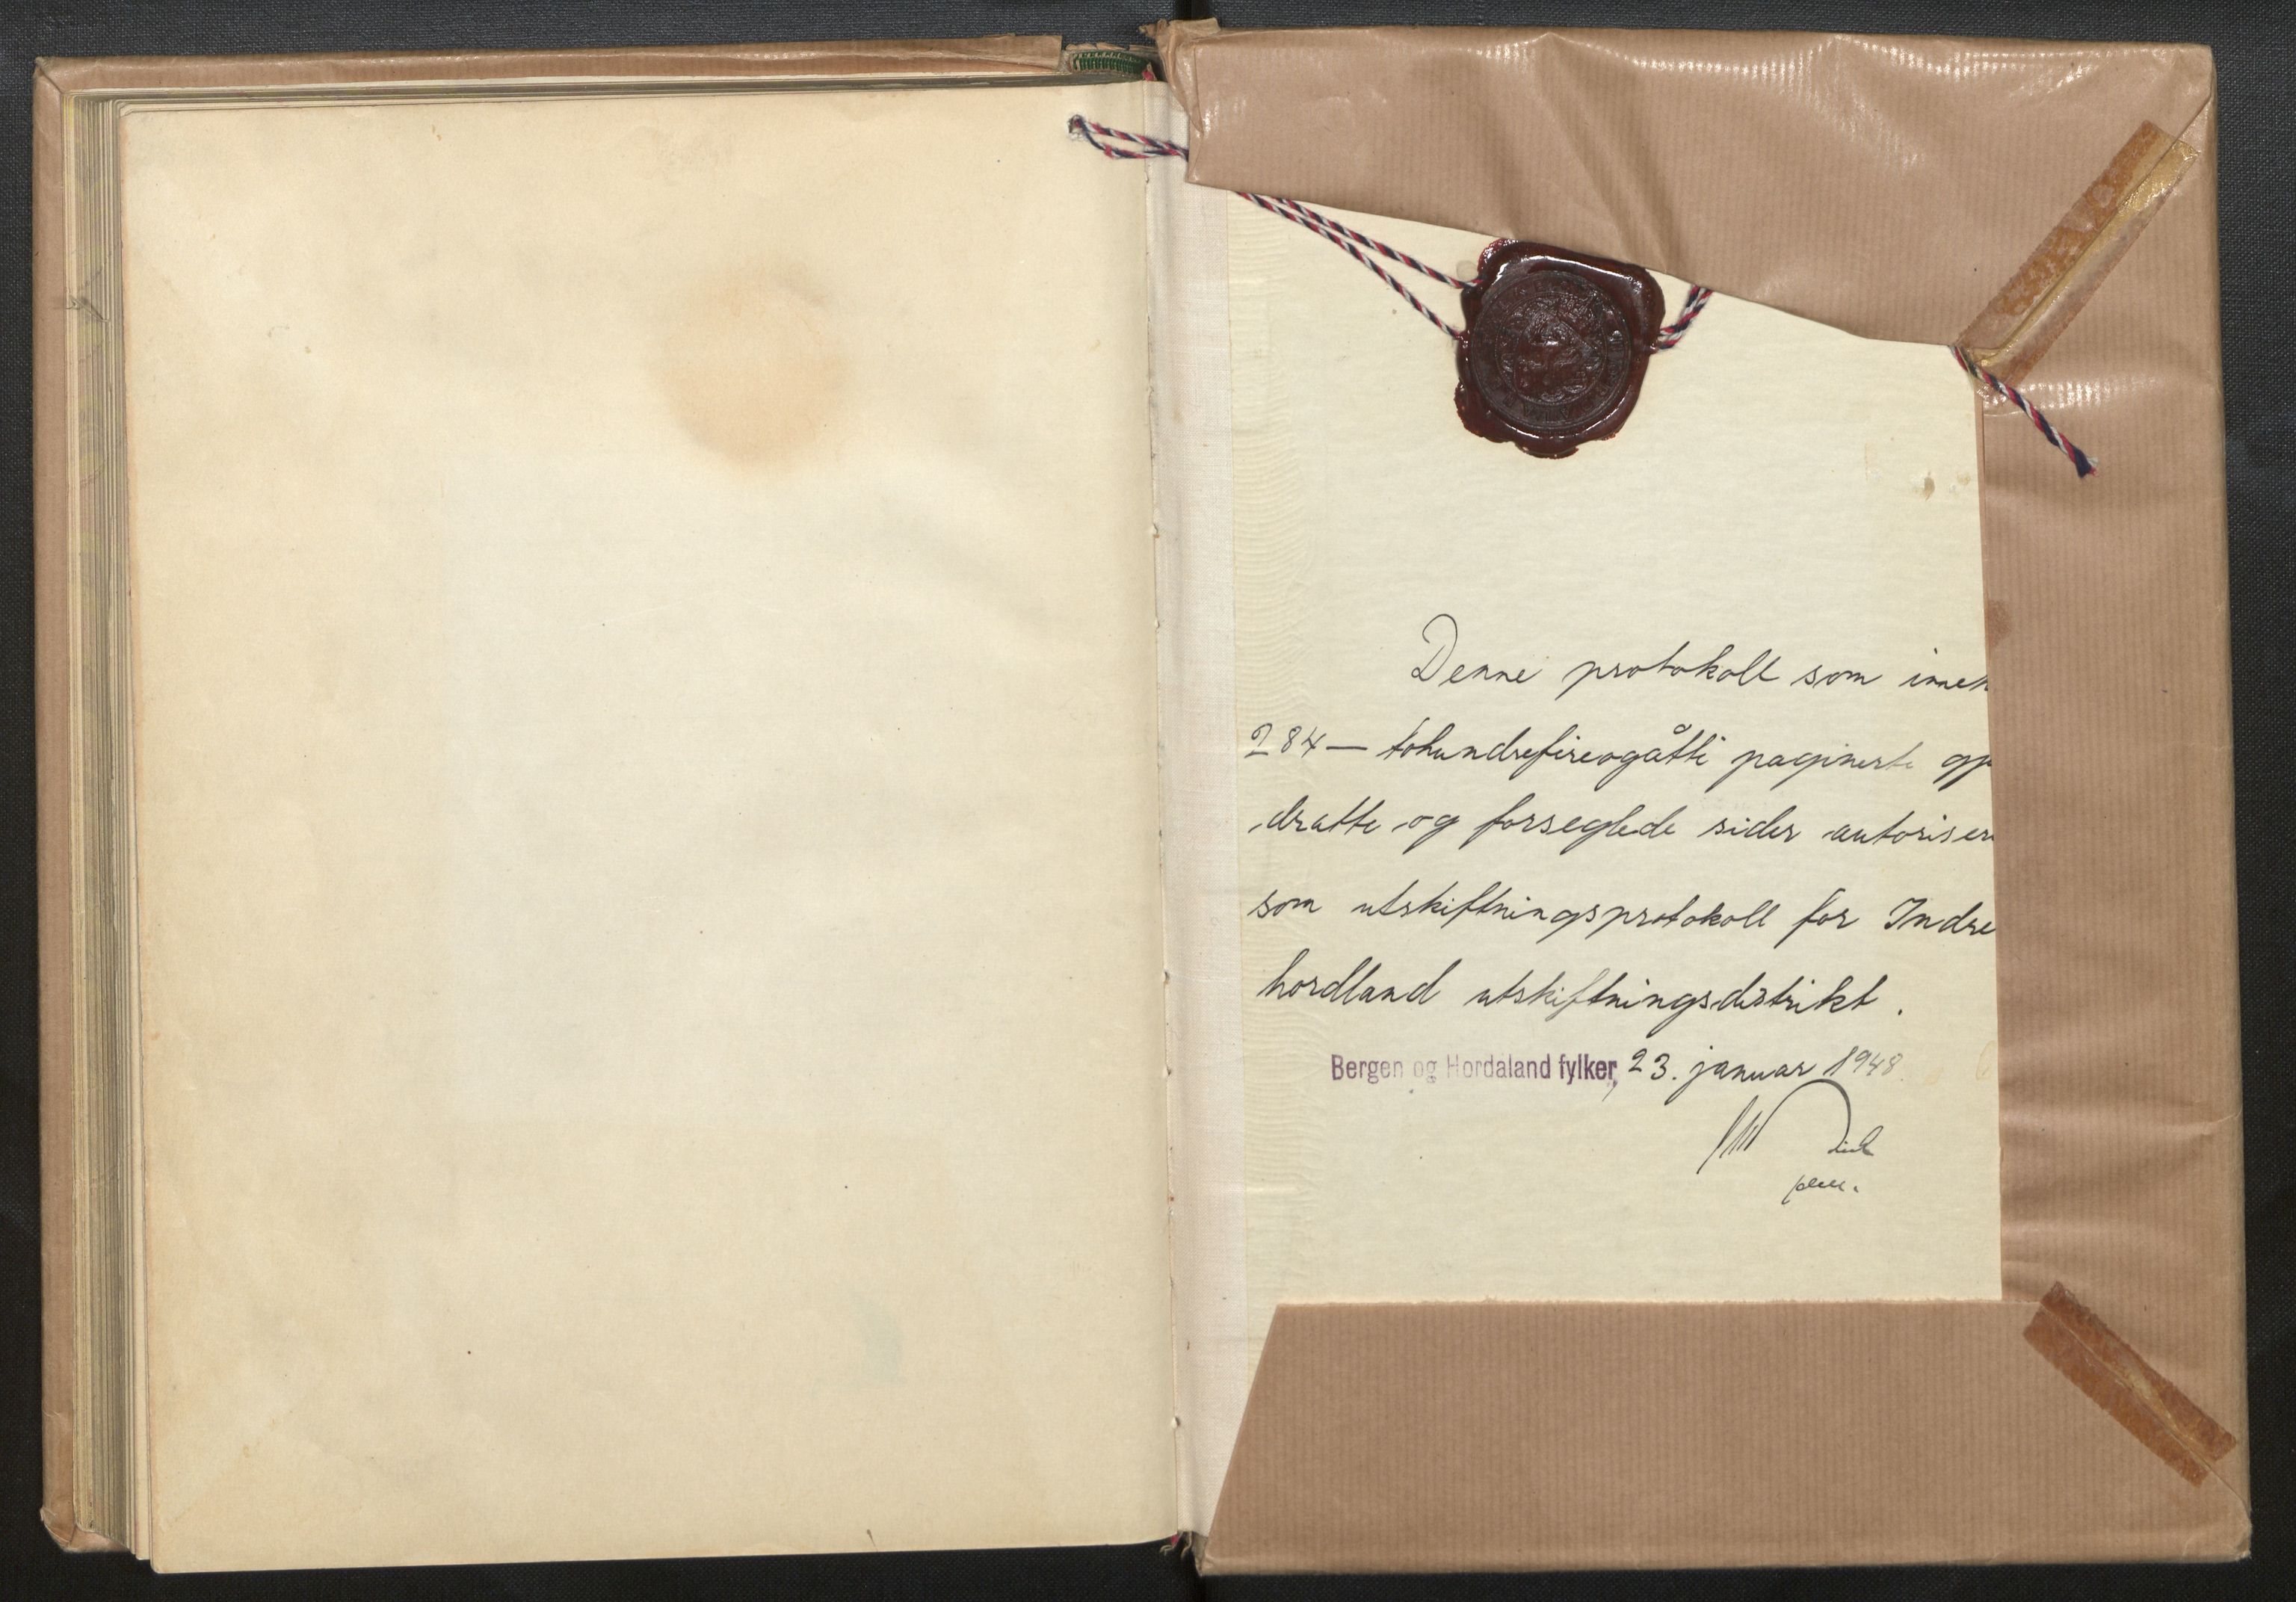 Denne protokoll som inneh
284 — tohundrefireogåtti paginerte gj
dratte og forseglede sider autoriser
som utskiftningsprotokoll for Indre
hordland utskiftningsdistrikt.
Bergen og Hordaland fylker, 23. januar 1948.